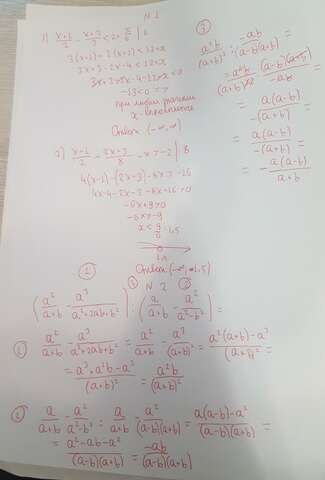 N 1
1) x+b/2 - x+3/3 < 2+ x/6 | 6
3(x+2)-2(x+2)<12+x
3x+3-2x-4<12+x
-13<0 =>
при любом значении
x - выполняется
Ответ: (-∞,∞)
2) x-1/2 - 2x+3/8 - x > -2 | 8
4(x-1)-(2x-3)-8x>-16
4x-4-2x-3-8x+16>0
-6x+9>0
-6x>-9
x < 9/6 1,5
1,5
Ответ: (-∞; 1.5)
①
N 2
③ ②
(a²/a+b - a³/a²+2ab+b²) : (a/a+b - a²/a²-b²) =
① a²/a+b - a³/a²+2ab+b² = a²/a+b - a³/(a+b)² = a²(a+b)-a³/(a+b)² =
= a³+a²b-a³/(a+b)² = a²b/(a+b)²
② a/a+b - a²/a²-b² = a/a+b - a²/(a-b)(a+b) = a(a-b)-a²/(a-b)(a+b) =
= a²-ab-a²/(a-b)(a+b) = -ab/(a-b)(a+b)
③
a²b/(a+b)² : -ab/(a-b)(a+b) =
= a²b/(a+b)² · (a-b)(a+b)/-ab =
= a(a-b)/-(a+b) =
= a(a-b)/-(a+b) =
= - a(a-b)/a+b